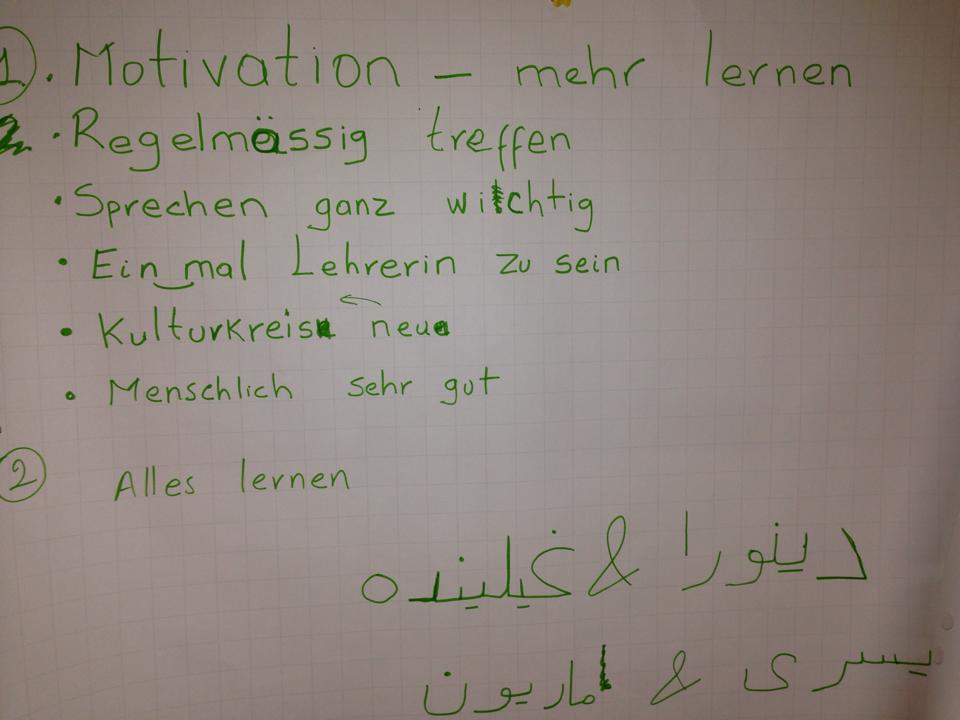 1. Motivation – mehr lernen
• Regelmässig treffen
• Sprechen ganz wichtig
• Ein mal Lehrerin zu sein
• Kulturkreis neu
• Menschlich sehr gut
2 Alles lernen
دينورا & غيلينده
يسرى & ماريون